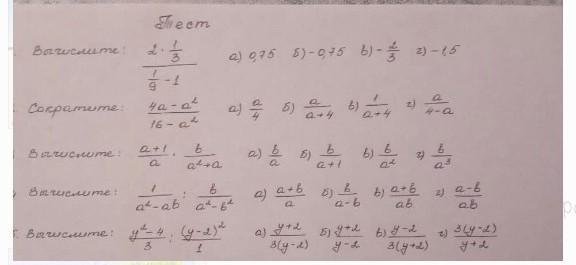 Тест
Вычислите: (2 · 1/3)/(1/9 - 1) а) 0,75 б) -0,75 в) -2/3 г) -1,5
Сократите: (4a - a²)/(16 - a²) а) a/4 б) a/(a+4) в) 1/(a+4) г) a/(4-a)
Вычислите: (a+1)/a · b/(a²+a) а) b/a б) b/(a+1) в) b/a² г) b/a³
Вычислите: 1/(a²-ab) : b/(a²-b²) а) (a+b)/a б) b/(a-b) в) (a+b)/ab г) (a-b)/ab
Вычислите: (y²-4)/3 : (y-2)²/1 а) (y+2)/3(y-2) б) (y+2)/(y-2) в) (y-2)/3(y+2) г) 3(y-2)/(y+2)